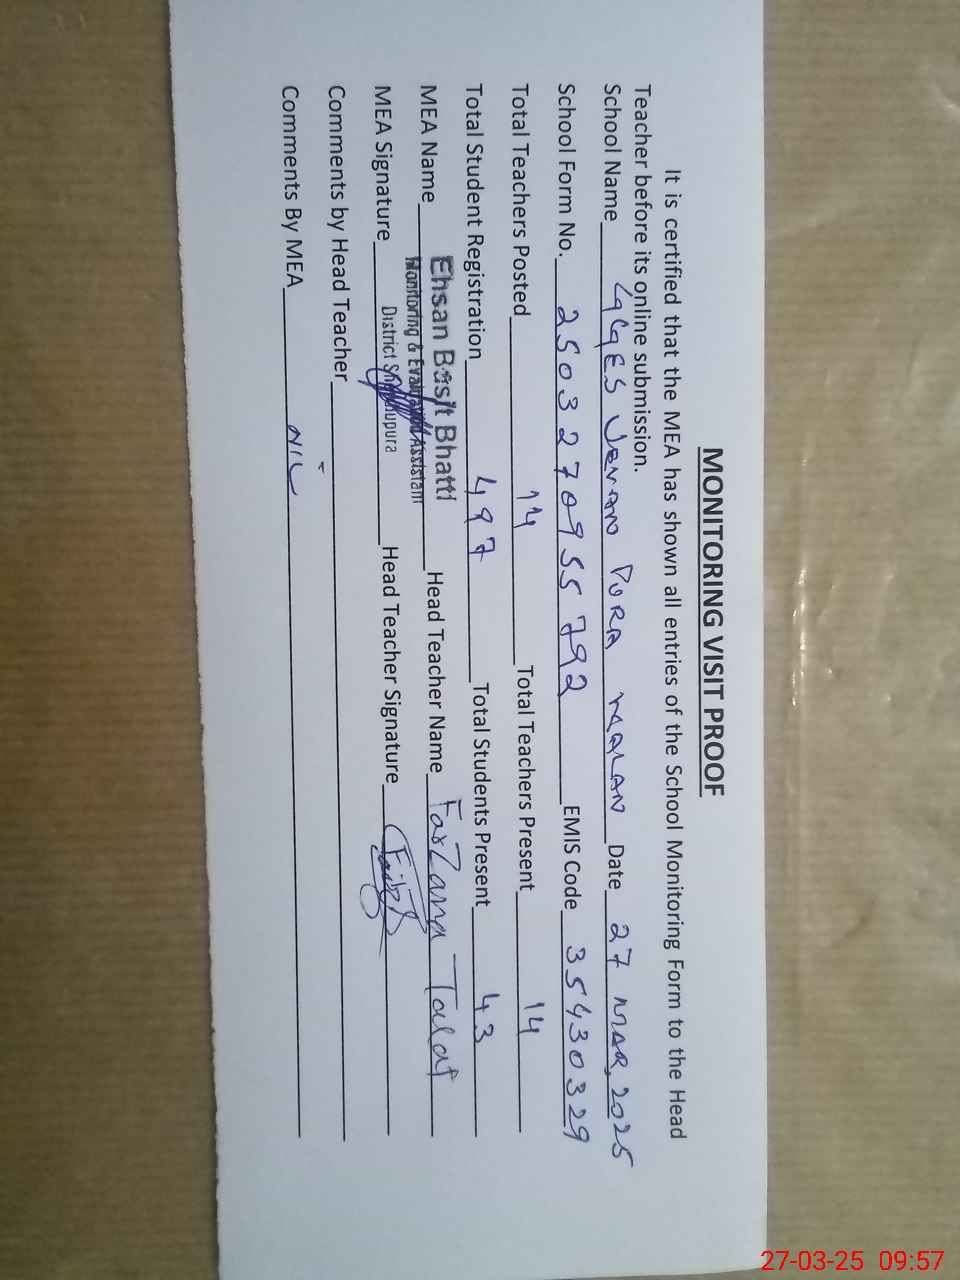 MONITORING VISIT PROOF
It is certified that the MEA has shown all entries of the School Monitoring Form to the Head
Teacher before its online submission.
School Name GGES JEVAN PURA MALAN Date 27 MAR, 2025
School Form No. 2503270955792 EMIS Code 35430329
Total Teachers Posted 14 Total Teachers Present 14
Total Student Registration 497 Total Students Present 43
MEA Name Ehsan Basit Bhatti Head Teacher Name Farzana Talat
Monitoring & Evaluation Assistant
District Sheikhupura
MEA Signature Head Teacher Signature
Comments by Head Teacher
Comments By MEA NIL
27-03-25 09:57